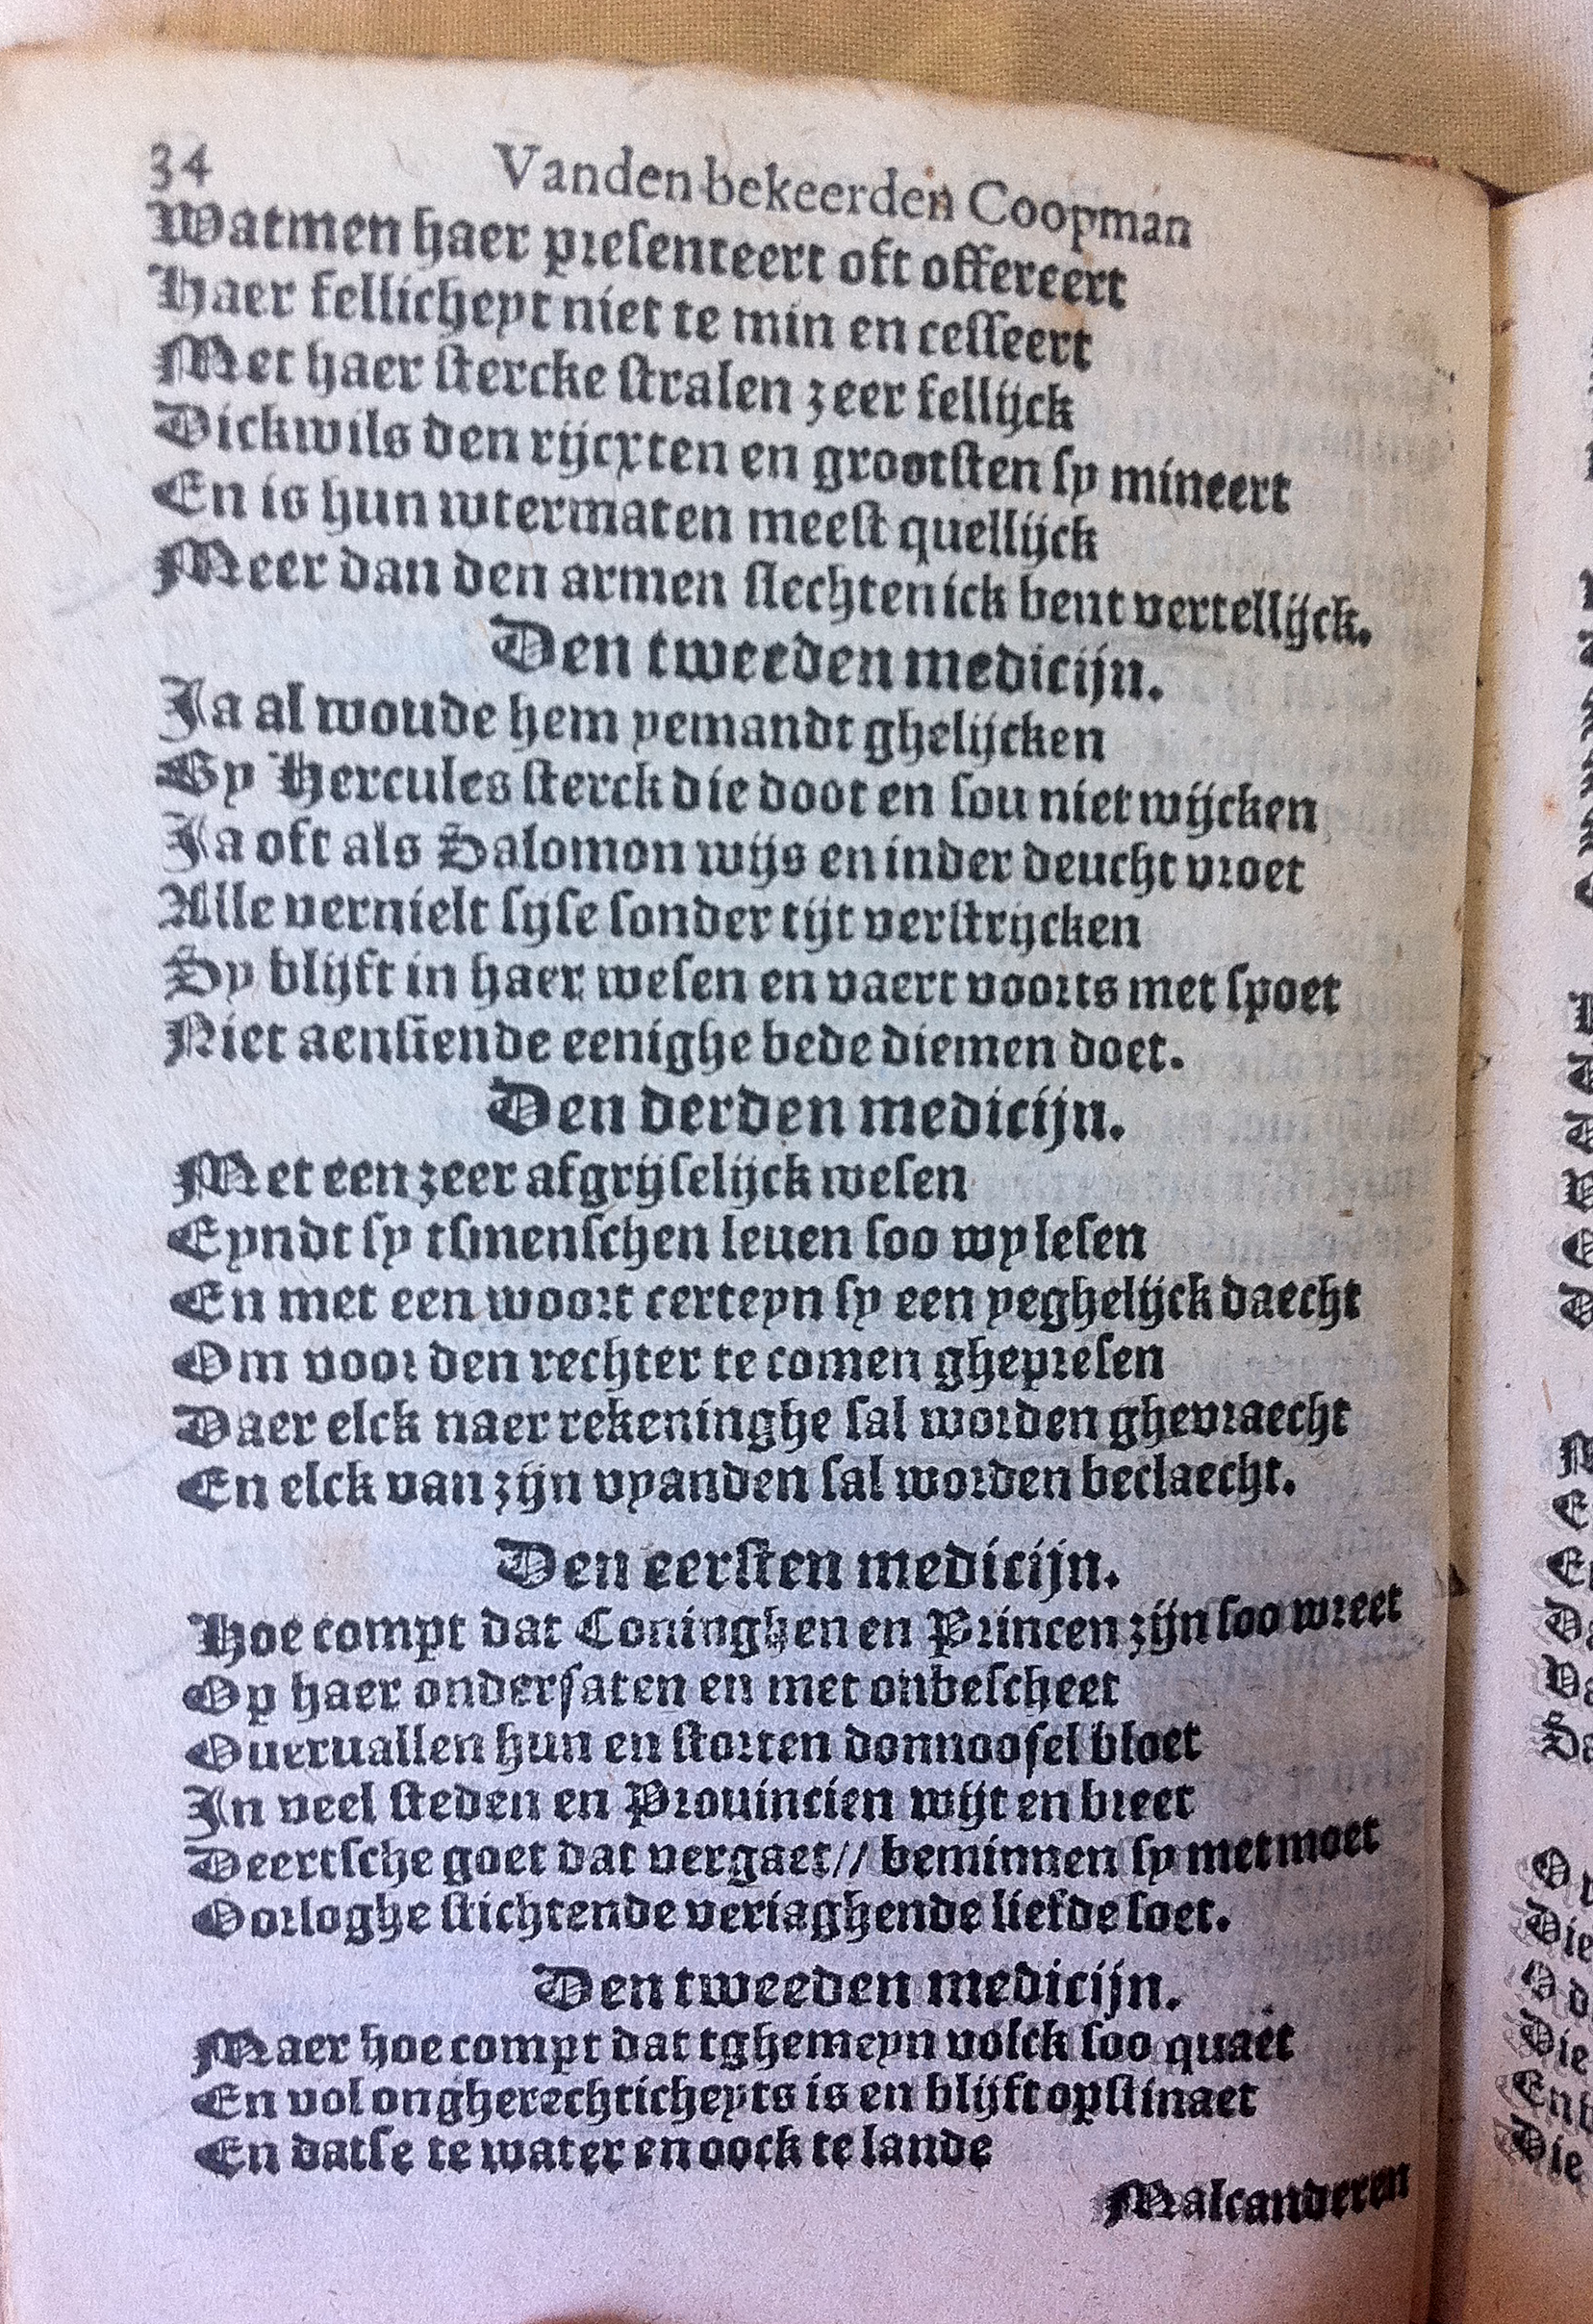 34 Vanden bekeerden Coopman
Watmen haer presenteert oft offereert
Haer fellicheyt niet te min en cesseert
Met haer stercke stralen zeer fellijck
Dickwils den rijcxten en grootsten sy mineert
En is hun wtermaten meest quellijck
Meer dan den armen slechten ick bent vertellijck.
Den tweeden medicijn.
Ja al woude hem yemandt ghelijcken
By Hercules sterck die doot en sou niet wijcken
Ja oft als Salomon wijs en inder deucht vroet
Alle vernielt syse sonder tijt verstrijcken
Sy blijft in haer wesen en vaert voorts met spoet
Niet aensiende eenighe bede diemen doet.
Den derden medicijn.
Met een zeer afgrijselijck wesen
Eyndt sy tsmenschen leuen soo wy lesen
En met een woort certeyn sy een yeghelijck daecht
Om voor den rechter te comen ghepresen
Daer elck naer rekeninghe sal worden ghevraecht
En elck van zijn vyanden sal worden beclaecht.
Den eersten medicijn.
Hoe compt dat Coninghen en Princen zijn soo wreet
Op haer ondersaten en met onbescheet
Oueruallen hun en storten donnoosel bloet
In veel steden en Prouincien wijt en breet
Deertsche goet dat vergaet// beminnen sy met moet
Oorloghe stichtende veriaghende liefde soet.
Den tweeden medicijn.
Maer hoe compt dat tghemeyn volck soo quaet
En vol ongherechticheyts is en blijft opstinaet
En datse te water en oock te lande
Malcanderen